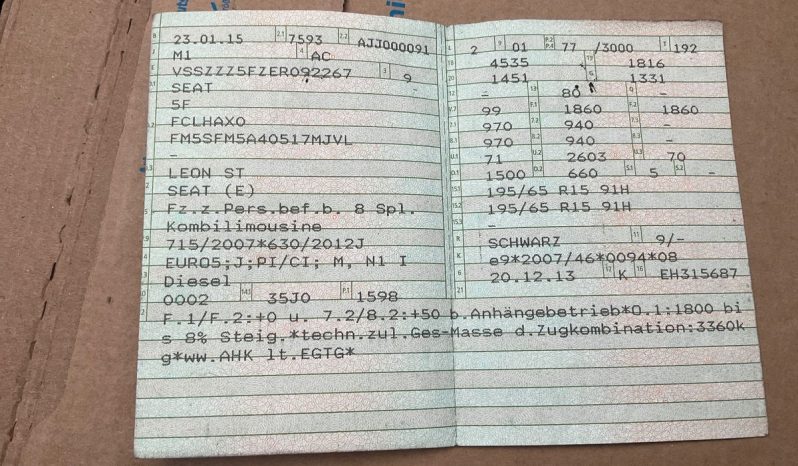 23.01.15 2.1 7593 2.2 AJJ000091
M1 4 AC
VSSZZZ5FZER092267 3 9
SEAT
5F
FCLHAXO
FM5SFM5A40517MJVL
-
LEON ST
SEAT (E)
Fz.z.Pers.bef.b. 8 Spl.
Kombilimousine
715/2007*630/2012J
EURO5;J;PI/CI; M, N1 I
Diesel
0002 14.1 35J0 P.1 1598
L 2 9 01 P.2 P.4 77 /3000 T 192
18 4535 19 1816
20 1451 G 1331
- 13 80 Q -
V.7 99 F.1 1860 F.2 1860
7.1 970 7.2 940 7.3 -
8.1 970 8.2 940 8.3 -
U.1 71 U.2 2603 U.3 70
O.1 1500 O.2 660 S.1 5 S.2 -
15.1 195/65 R15 91H
15.2 195/65 R15 91H
15.3 -
R SCHWARZ 11 9/-
K e9*2007/46*0094*08
6 20.12.13 17 K 16 EH315687
21
F.1/F.2:+0 u. 7.2/8.2:+50 b.Anhängebetrieb*O.1:1800 bi
s 8% Steig.*techn.zul.Ges-Masse d.Zugkombination:3360k
g*ww.AHK lt.EGTG*